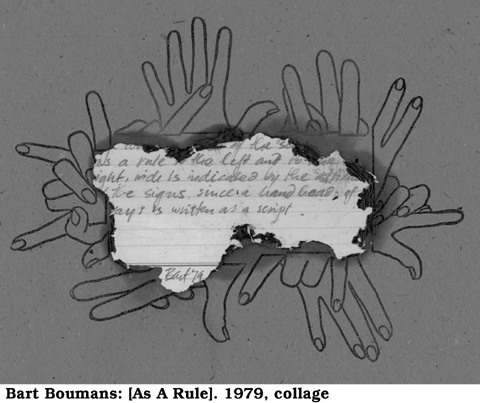 of the
as a rule the left and
ight, wide is indicated by the
the signs. since a hand
ays is written as a script
Bart 79
Bart Boumans: [As A Rule]. 1979, collage